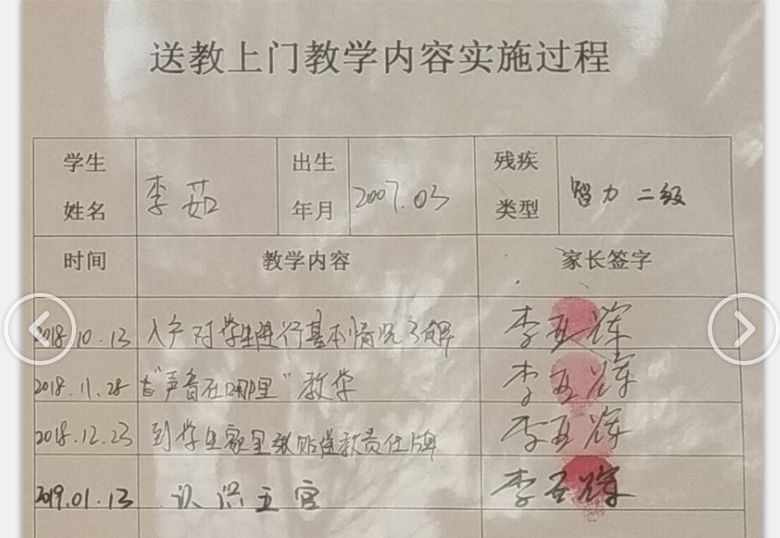 送教上门教学内容实施过程
学生姓名 李茹 出生年月 2007.03 残疾类型 智力 二级
时间 教学内容 家长签字
2018.10.13 入户对学生进行基本情况了解 李亚辉
2018.11.28 "声音在哪里"教学 李亚辉
2018.12.23 到学生家里张贴送教责任牌 李亚辉
2019.01.13 认识五官 李亚辉